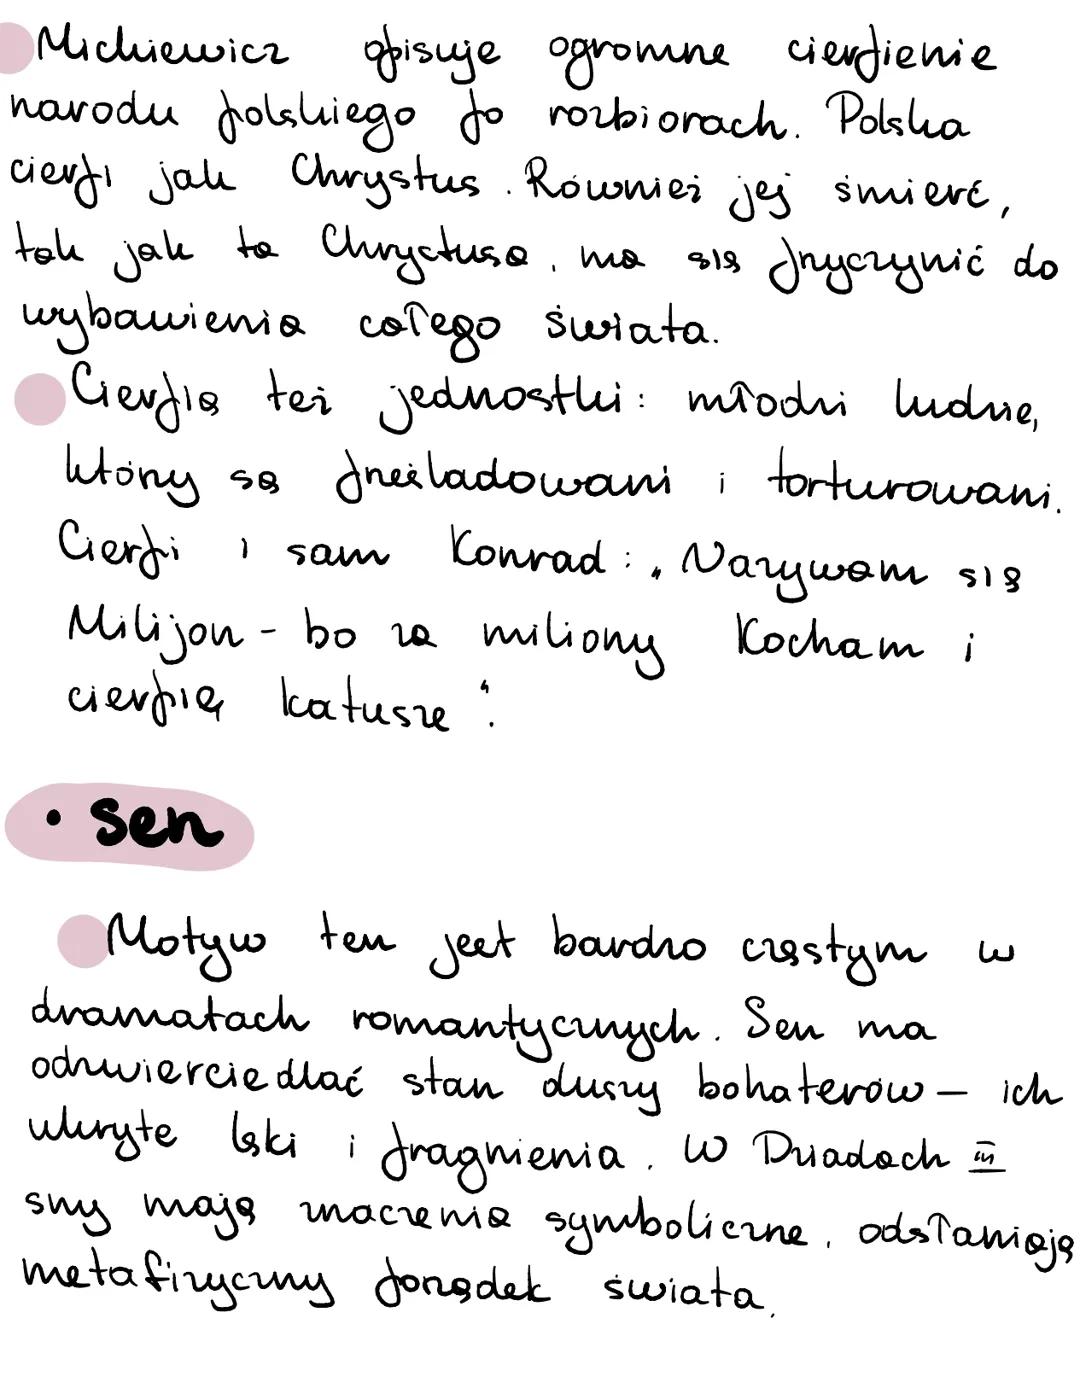 Mickiewicz opisuje ogromne cierpienie
narodu polskiego po rozbiorach. Polska
cierpi jak Chrystus. Również jej śmierć,
tak jak ta Chrystusa, ma się przyczynić do
wybawienia całego świata.
Cierpią też jednostki: młodzi ludzie,
którzy są prześladowani i torturowani.
Cierpi i sam Konrad: „Nazywam się
Milijon - bo za miliony Kocham i
cierpię katusze".
• sen
Motyw ten jest bardzo częstym w
dramatach romantycznych. Sen ma
odzwierciedlać stan duszy bohaterów – ich
ukryte lęki i pragnienia. W Dziadach III
sny mają znaczenia symboliczne, odsłaniają
metafizyczny porządek świata.